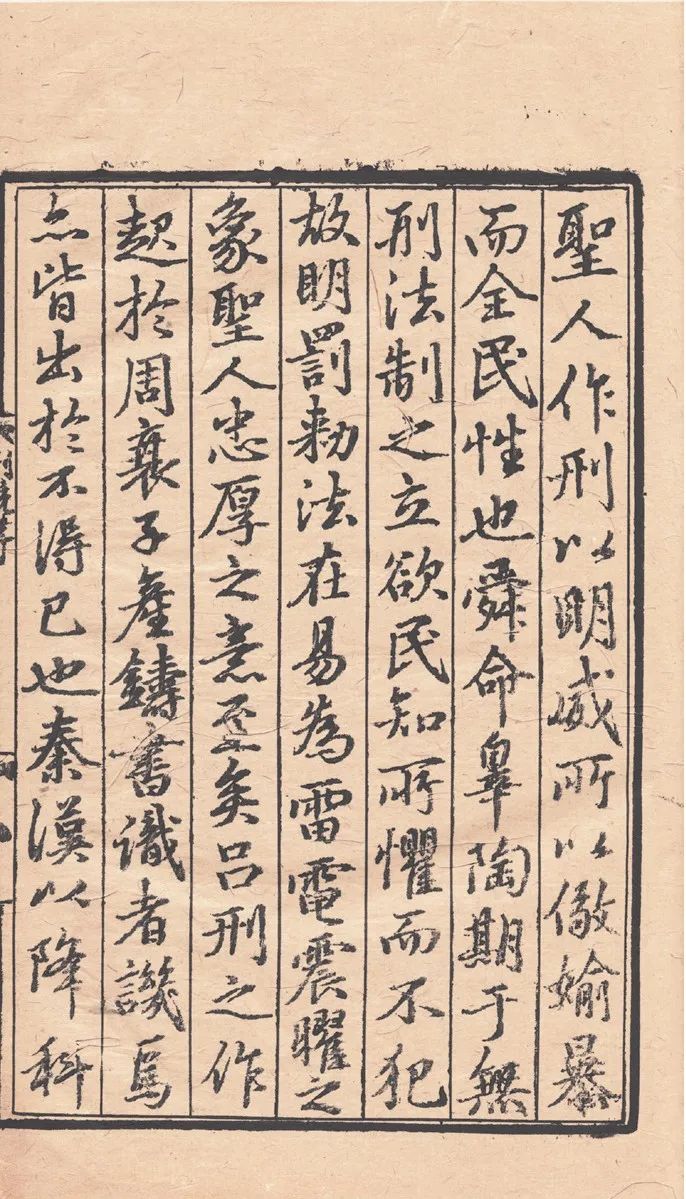 聖人作刑以明威所以儆婾暴
而全民性也舜命皐陶期于無
刑法制之立欲民知所懼而不犯
故明罰勑法在易為雷電震曜之
象聖人忠厚之意至矣呂刑之作
起於周衰子產鑄書識者譏焉
亦皆出於不得已也秦漢以降科